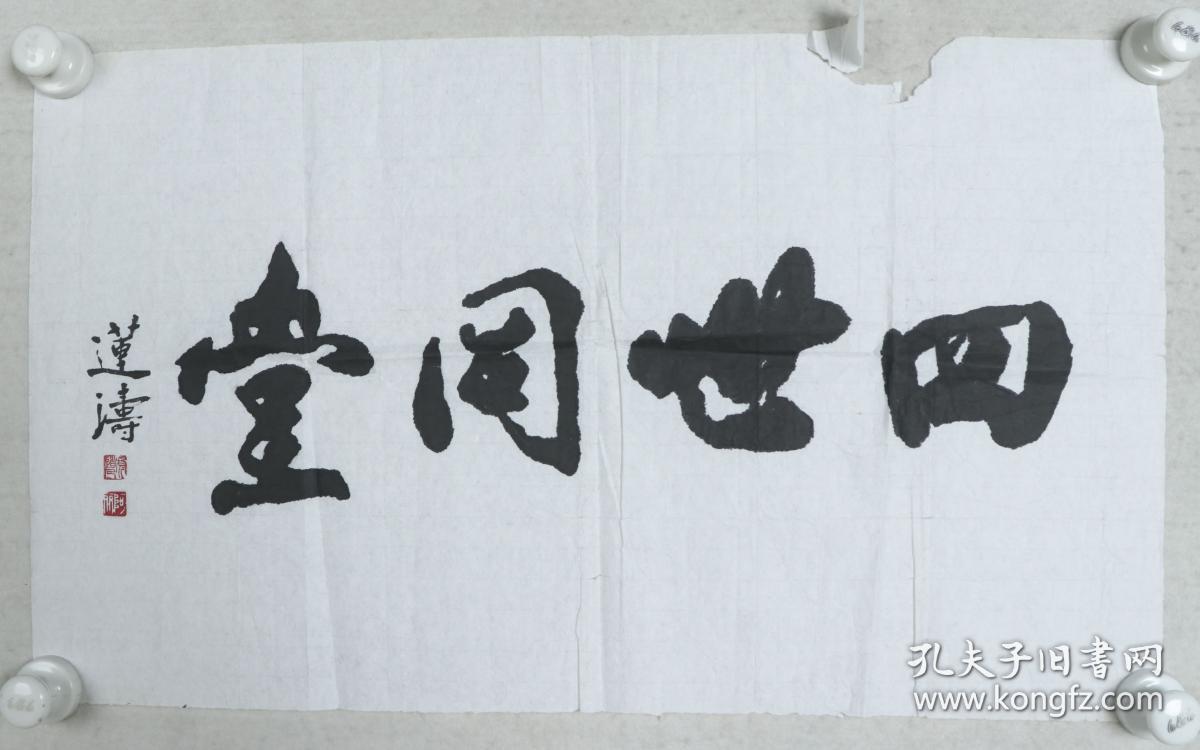 四世同堂
蓮濤
孔夫子旧書网
www.kongfz.com